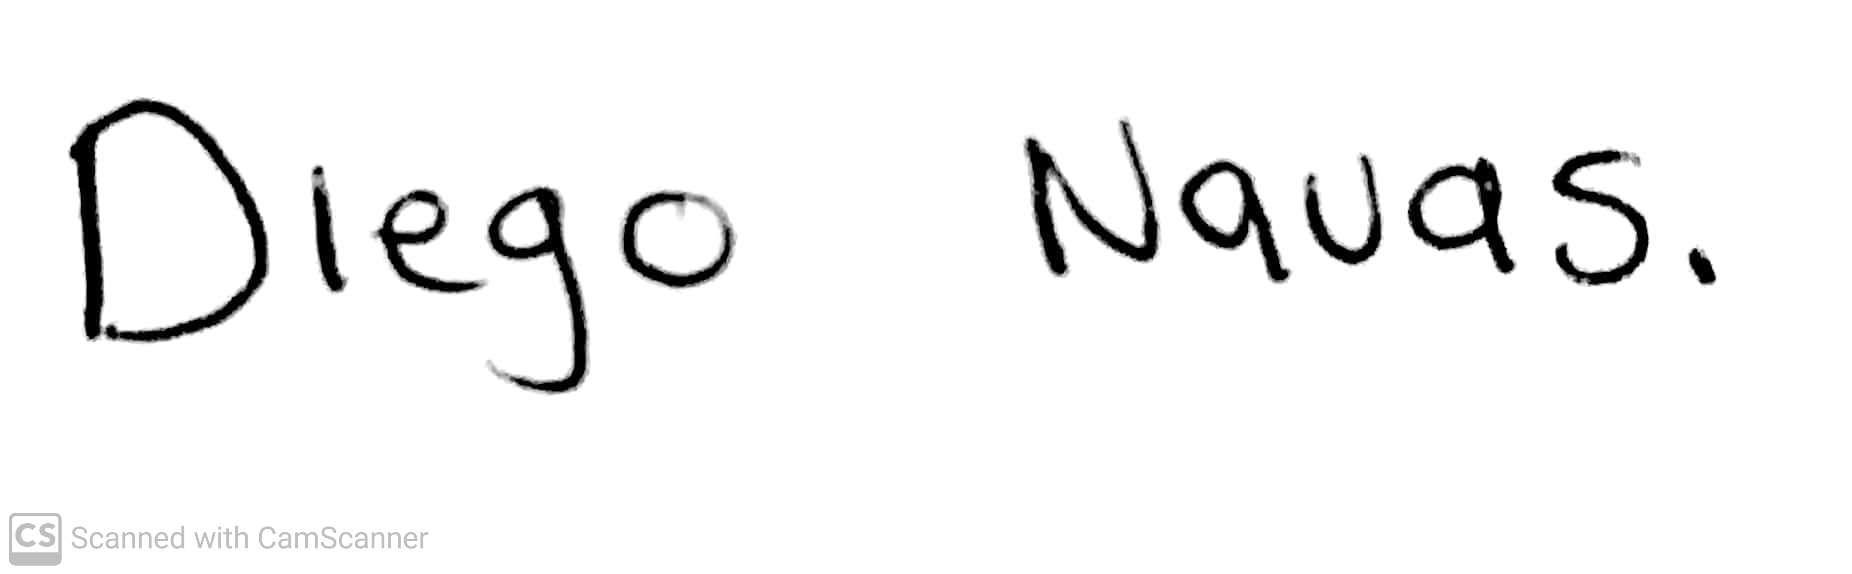 Diego Navas.
CS Scanned with CamScanner